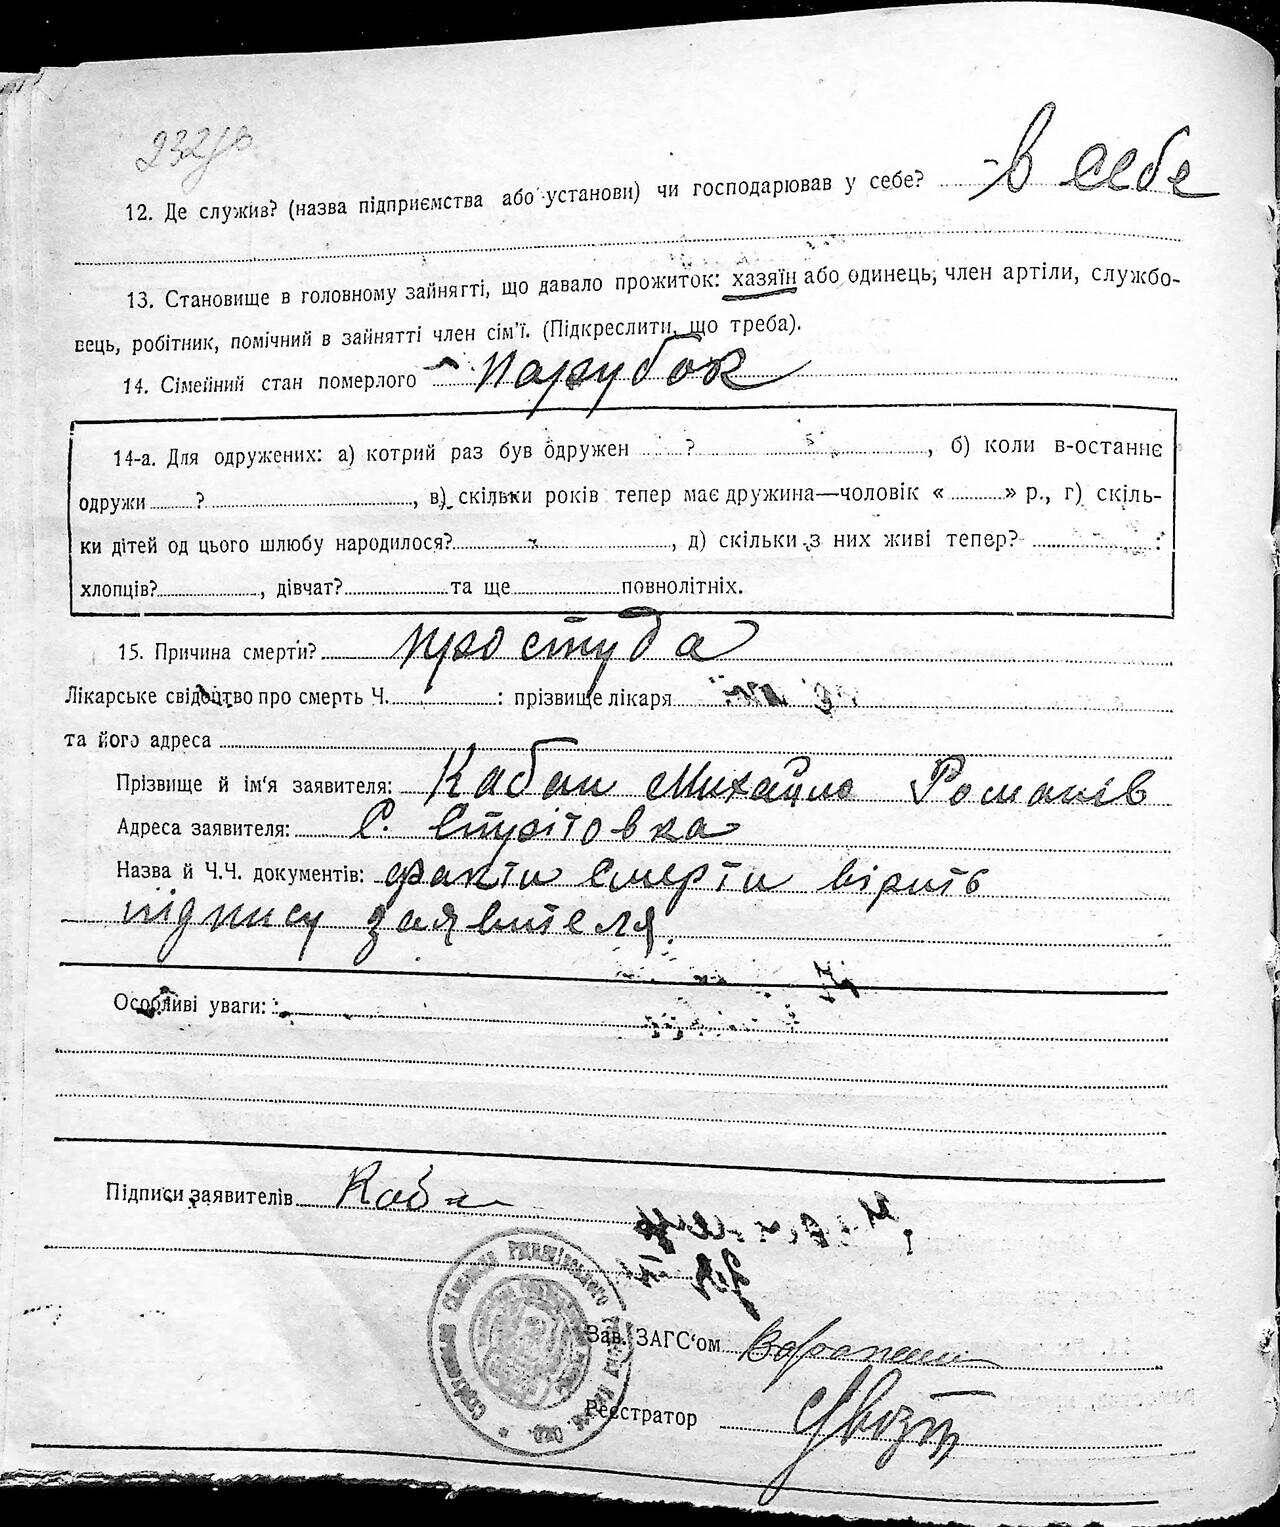 232зв
12. Де служив? (назва підприємства або установи) чи господарював у себе? в себе
13. Становище в головному зайнятті, що давало прожиток: хазяїн або одинець, член артіли, службо-
вець, робітник, помічний в зайнятті член сім'ї. (Підкреслити, що треба).
14. Сімейний стан померлого парубок
14-а. Для одружених: а) котрий раз був одружен ? , б) коли в-останнє
одружи ? , в) скільки років тепер має дружина—чоловік « » р., г) скіль-
ки дітей од цього шлюбу народилося? , д) скільки з них живі тепер? :
хлопців? , дівчат? та ще повнолітніх.
15. Причина смерти? простуда
Лікарське свідоцтво про смерть Ч. : прізвище лікаря
та його адреса
Прізвище й ім'я заявителя: Кабан Михайло Романів
Адреса заявителя: С. Строїтовка
Назва й Ч.Ч. документів: факти смерти вірить
підпису заявителя.
Особливі уваги:
Підписи заявителів Кабан
Зав. ЗАГС'ом
Реєстратор